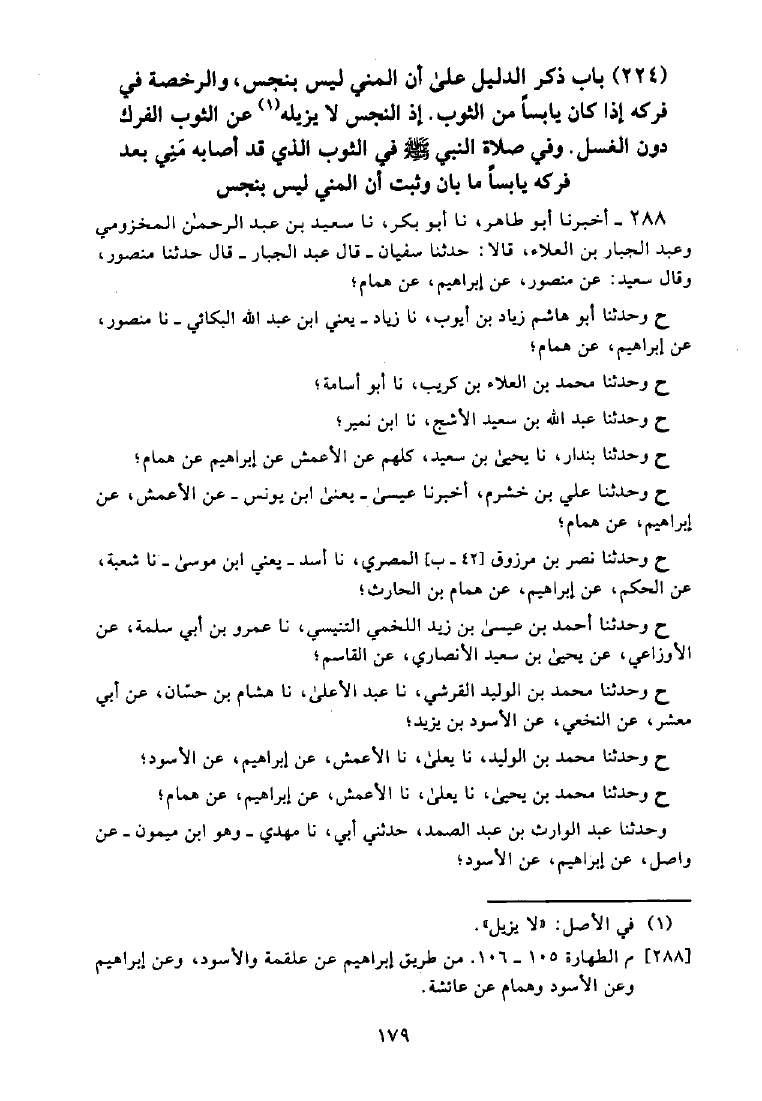 (٢٢٤) باب ذكر الدليل علىٰ أن المني ليس بنجس، والرخصة في
فركه إذا كان يابساً من الثوب. إذ النجس لا يزيله(١) عن الثوب الفرك
دون الغسل. وفي صلاة النبي ﷺ في الثوب الذي قد أصابه مَنِي بعد
فركه يابساً ما بان وثبت أن المني ليس بنجس
٢٨٨ ـ أخبرنا أبو طاهر، نا أبو بكر، نا سعيد بن عبد الرحمٰن المخزومي
وعبد الجبار بن العلاء، قالا: حدثنا سفيان ـ قال عبد الجبار ـ قال حدثنا منصور،
وقال سعيد: عن منصور، عن إبراهيم، عن همام؛
ح وحدثنا أبو هاشم زياد بن أيوب، نا زياد ـ يعني ابن عبد الله البكائي ـ نا منصور،
عن إبراهيم، عن همام؛
ح وحدثنا محمد بن العلاء بن كريب، نا أبو أسامة؛
ح وحدثنا عبد الله بن سعيد الأشج، نا ابن نمير؛
ح وحدثنا بندار، نا يحيىٰ بن سعيد، كلهم عن الأعمش عن إبراهيم عن همام؛
ح وحدثنا علي بن خشرم، أخبرنا عيسىٰ ـ يعنىٰ ابن يونس ـ عن الأعمش، عن
إبراهيم، عن همام؛
ح وحدثنا نصر بن مرزوق [٤٢ ـ ب] المصري، نا أسد ـ يعني ابن موسىٰ ـ نا شعبة،
عن الحكم، عن إبراهيم، عن همام بن الحارث؛
ح وحدثنا أحمد بن عيسىٰ بن زيد اللخمي التنيسي، نا عمرو بن أبي سلمة، عن
الأوزاعي، عن يحيىٰ بن سعيد الأنصاري، عن القاسم؛
ح وحدثنا محمد بن الوليد القرشي، نا عبد الأعلىٰ، نا هشام بن حسّان، عن أبي
معشر، عن النخعي، عن الأسود بن يزيد؛
ح وحدثنا محمد بن الوليد، نا يعلىٰ، نا الأعمش، عن إبراهيم، عن الأسود؛
ح وحدثنا محمد بن يحيىٰ، نا يعلىٰ، نا الأعمش، عن إبراهيم، عن همام؛
وحدثنا عبد الوارث بن عبد الصمد، حدثني أبي، نا مهدي ـ وهو ابن ميمون ـ عن
واصل، عن إبراهيم، عن الأسود؛
(١) في الأصل: «لا يزيل».
[٢٨٨] م الطهارة ١٠٥ ـ ١٠٦. من طريق إبراهيم عن علقمة والأسود، وعن إبراهيم
وعن الأسود وهمام عن عائشة.
١٧٩